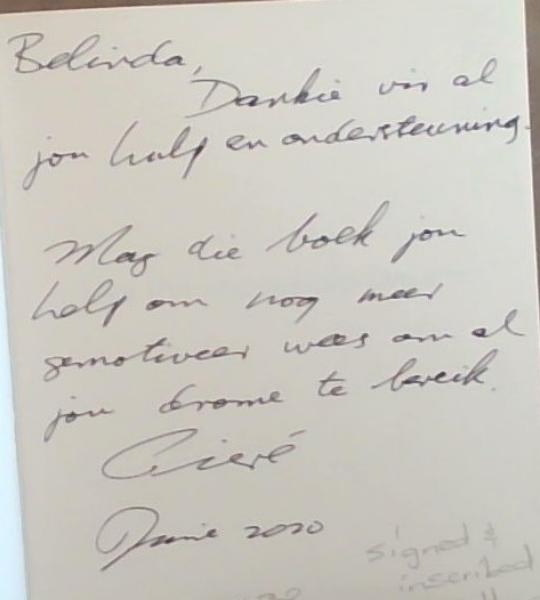 Belinda,
Dankie vir al
jou hulp en ondersteuning.
Mag die boek jou
help om nog meer
gemotiveer wees om al
jou drome te bereik.
Cieré
Junie 2020
signed &
inscribed